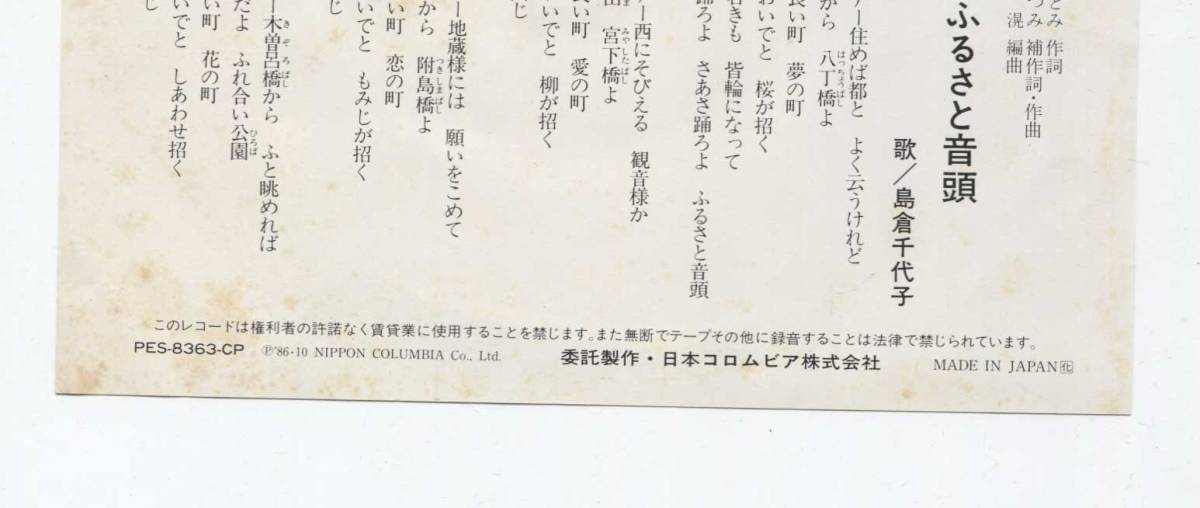 とみ 作詞
つみ 補作詞・作曲
滉 編曲
ふるさと音頭
歌／島倉千代子
ー住めば都と よく云うけれど
から 八丁橋よ
はっちょうばし
良い町 夢の町
おいでと 桜が招く
若きも 皆輪になって
踊ろよ さあさ踊ろよ ふるさと音頭
ー西にそびえる 観音様か
宮下橋よ
みやしたばし
い町 愛の町
いでと 柳が招く
じ
ー地蔵様には 願いをこめて
から 附島橋よ
つきしまばし
い町 恋の町
いでと もみじが招く
じ
ー木曽呂橋から ふと眺めれば
きぞろばし
だよ ふれ合い公園
ひろば
い町 花の町
いでと しあわせ招く
じ
このレコードは権利者の許諾なく賃貸業に使用することを禁じます。また無断でテープその他に録音することは法律で禁じられています。
PES-8363-CP ℗'86·10 NIPPON COLUMBIA Co., Ltd. 委託製作・日本コロムビア株式会社 MADE IN JAPAN 化